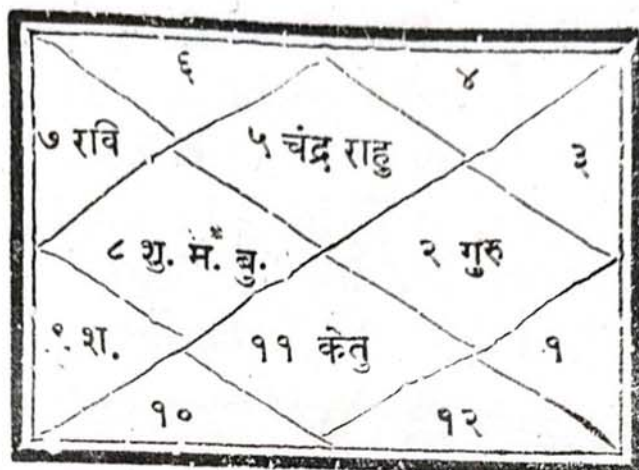 ६ ४
७ रवि ५ चंद्र राहु ३
८ शु. मं. बु. २ गुरु
९ श. ११ केतु १
१० १२